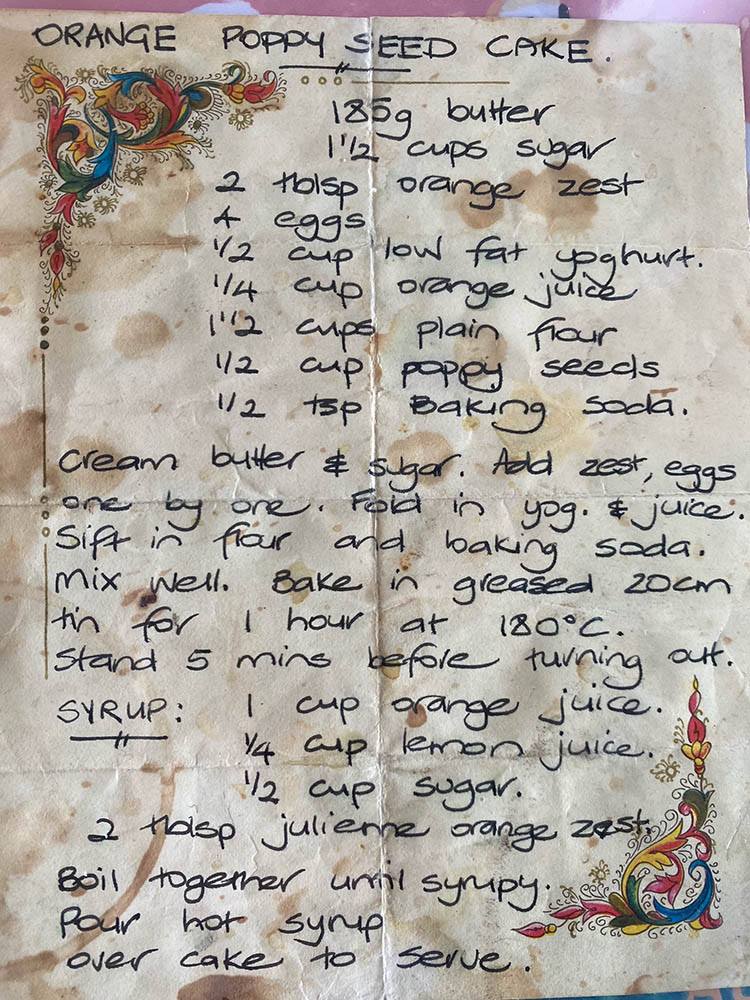 ORANGE POPPY SEED CAKE.
185g butter
1 1/2 cups sugar
2 tblsp orange zest
4 eggs
1/2 cup low fat yoghurt.
1/4 cup orange juice
1 1/2 cups plain flour
1/2 cup poppy seeds
1/2 tsp Baking soda.
Cream butter & sugar. Add zest, eggs
one by one. Fold in yog. & juice.
Sift in flour and baking soda.
Mix well. Bake in greased 20cm
tin for 1 hour at 180°C.
Stand 5 mins before turning out.
SYRUP: 1 cup orange juice.
1/4 cup lemon juice.
1/2 cup sugar.
2 tblsp julienne orange zest.
Boil together until syrupy.
Pour hot syrup
over cake to serve.